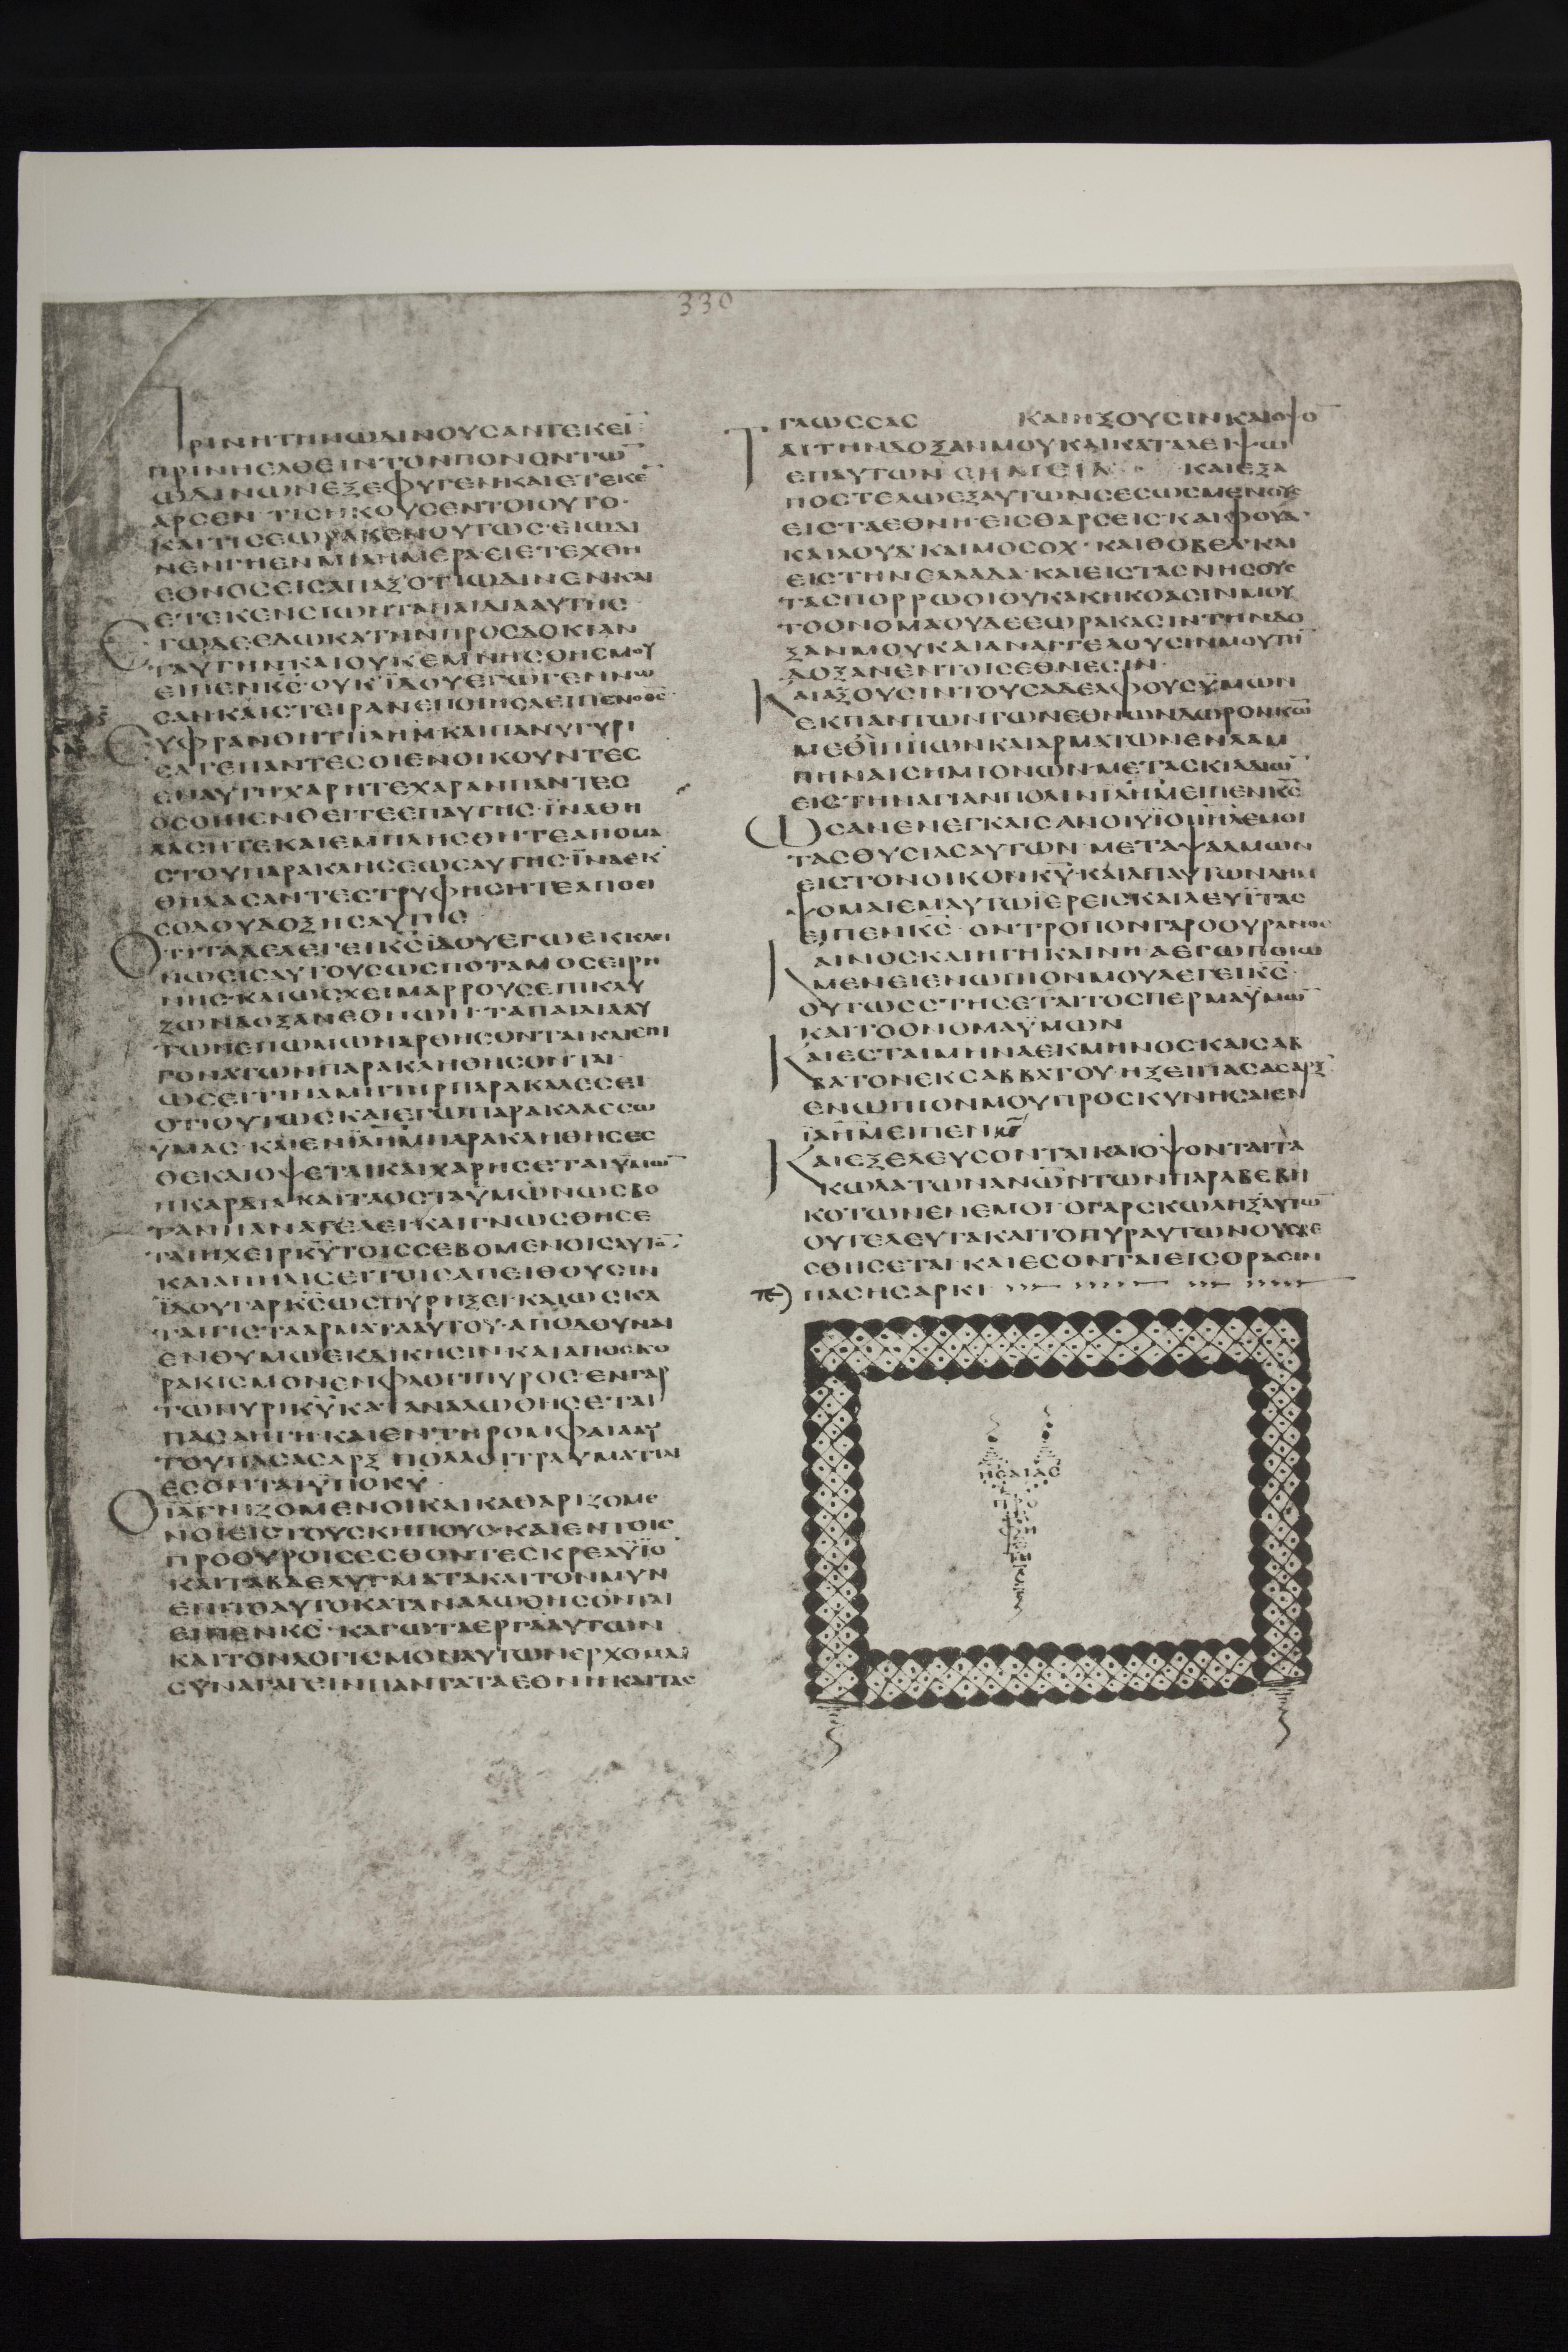 330
ΠΡΙΝΗΤΗΝΩΔΙΝΟΥΣΑΝΤΕΚΕΙ̅
ΠΡΙΝΗΕΛΘΕΙΝΤΟΝΠΟΝΟΝΤΩ̅
ΩΔΙΝΩΝΕΞΕΦΥΓΕΝΚΑΙΕΤΕΚΕ̅
ΑΡΣΕΝ ΤΙΣΗΚΟΥΣΕΝΤΟΙΟΥΤΟ·
ΚΑΙΤΙΣΕΩΡΑΚΕΝΟΥΤΩΣ·ΕΙΩΔΙ
ΝΕΝΓΗΕΝΜΙΑΗΜΕΡΑΕΙΕΤΕΧΘΗ
ΕΘΝΟΣΕΙΣΑΠΑΞΟΤΙΩΔΙΝΕΝΚΑΙ
ΕΤΕΚΕΝΣΙΩΝΤΑΠΑΙΔΙΑΑΥΤΗΣ
ΕΓΩΔΕΕΔΩΚΑΤΗΝΠΡΟΣΔΟΚΙΑΝ
ΤΑΥΤΗΝΚΑΙΟΥΚΕΜΝΗΣΘΗΣΜΟΥ
ΕΙΠΕΝΚ̅Σ̅·ΟΥΚΪΔΟΥΕΓΩΓΕΝΝΩ
ΣΑΝΚΑΙΣΤΕΙΡΑΝΕΠΟΙΗΣΑΕΙΠΕΝΟΘ̅Σ̅
ΕΥΦΡΑΝΘΗΤΙΙ̅Λ̅Η̅Μ̅·ΚΑΙΠΑΝΥΓΥΡΙ
ΣΑΤΕΠΑΝΤΕΣΟΙΕΝΟΙΚΟΥΝΤΕΣ
ΕΝΑΥΤΗΧΑΡΗΤΕΧΑΡΑΝΠΑΝΤΕΣ
ΟΣΟΙΠΕΝΘΕΙΤΕΕΠΑΥΤΗΣ·ΪΝΑΘΗ
ΛΑΣΗΤΕΚΑΙΕΜΠΛΗΣΘΗΤΕΑΠΟΜΑ
ΣΤΟΥΠΑΡΑΚΛΗΣΕΩΣΑΥΤΗΣ·ΪΝΑΕΚ
ΘΗΛΑΣΑΝΤΕΣΤΡΥΦΗΣΗΤΕΑΠΟΕΙ
ΣΟΔΟΥΔΟΞΗΣΑΥΤΗΣ
ΟΤΙΤΑΔΕΛΕΓΕΙΚ̅Σ̅ΙΔΟΥΕΓΩΕΚΚΛΙ
ΝΩΕΙΣΑΥΤΟΥΣΩΣΠΟΤΑΜΟΣΕΙΡΗ
ΝΗΣ·ΚΑΙΩΣΧΕΙΜΑΡΡΟΥΣΕΠΙΚΛΥ
ΖΩΝΔΟΞΑΝΕΘΝΩΝ·ΤΑΠΑΙΔΙΑΑΥ
ΤΩΝΕΠΩΜΩΝΑΡΘΗΣΟΝΤΑΙΚΑΙΕΠΙ
ΓΟΝΑΤΩΝΠΑΡΑΚΛΗΘΗΣΟΝΤΑΙ
ΩΣΕΙΤΙΝΑΜΗΤΗΡΠΑΡΑΚΑΛΕΣΕΙ
ΟΤΙΟΥΤΩΣΚΑΙΕΓΩΠΑΡΑΚΑΛΕΣΩ
ΥΜΑΣ·ΚΑΙΕΝΙ̅Λ̅Η̅Μ̅ΠΑΡΑΚΛΗΘΗΣΕΣ
ΘΕΚΑΙΟΨΕΤΑΙΚΑΙΧΑΡΗΣΕΤΑΙΫΜΩ̅
ΗΚΑΡΔΙΑ·ΚΑΙΤΑΟΣΤΑΫΜΩΝΩΣΒΟ
ΤΑΝΗΑΝΑΤΕΛΕΙ·ΚΑΙΓΝΩΣΘΗΣΕ
ΤΑΙΗΧΕΙΡΚ̅Υ̅ΤΟΙΣΣΕΒΟΜΕΝΟΙΣΑΥΤΟ̅
ΚΑΙΑΠΙΛΗΣΕΙΤΟΙΣΑΠΕΙΘΟΥΣΙΝ
ΪΔΟΥΓΑΡΚ̅Σ̅ΩΣΠΥΡΗΞΕΙ·ΚΑΙΩΣΚΑ
ΤΑΙΓΙΣΤΑΑΡΜΑΤΑΑΥΤΟΥ·ΑΠΟΔΟΥΝΑΙ
ΕΝΘΥΜΩΕΚΔΙΚΗΣΙΝ·ΚΑΙΑΠΟΣΚΟ
ΡΑΚΙΣΜΟΝΕΝΦΛΟΓΙΠΥΡΟΣ·ΕΝΓΑΡ
ΤΩΠΥΡΙΚ̅Υ̅ΚΑΤΑΝΑΛΩΘΗΣΕΤΑΙ
ΠΑΣΑΗΓΗ·ΚΑΙΕΝΤΗΡΟΜΦΑΙΑΑΥ
ΤΟΥΠΑΣΑΣΑΡΞ ΠΟΛΛΟΙΤΡΑΥΜΑΤΙΑΙ
ΕΣΟΝΤΑΙΫΠΟΚ̅Υ̅
ΟΙΑΓΝΙΖΟΜΕΝΟΙΚΑΙΚΑΘΑΡΙΖΟΜΕ
ΝΟΙΕΙΣΤΟΥΣΚΗΠΟΥΣ·ΚΑΙΕΝΤΟΙΣ
ΠΡΟΘΥΡΟΙΣΕΣΘΟΝΤΕΣΚΡΕΑΫΪΟ̅
ΚΑΙΤΑΒΔΕΛΥΓΜΑΤΑΚΑΙΤΟΝΜΥΝ
ΕΠΙΤΟΑΥΤΟΚΑΤΑΝΑΛΩΘΗΣΟΝΤΑΙ
ΕΙΠΕΝΚ̅Σ̅·ΚΑΓΩΤΑΕΡΓΑΑΥΤΩΝ
ΚΑΙΤΟΝΛΟΓΙΣΜΟΝΑΥΤΩΝΕΡΧΟΜΑΙ
ΣΥΝΑΓΑΓΕΙΝΠΑΝΤΑΤΑΕΘΝΗΚΑΙΤΑΣ
ΓΛΩΣΣΑΣ ΚΑΙΗΞΟΥΣΙΝΚΑΙΟΨΟ̅
ΤΑΙΤΗΝΔΟΞΑΝΜΟΥΚΑΙΚΑΤΑΛΕΙΨΩ
ΕΠΑΥΤΩΝΣΗΜΕΙΑ · ΚΑΙΕΞΑ
ΠΟΣΤΕΛΩΕΞΑΥΤΩΝΣΕΣΩΣΜΕΝΟΥΣ
ΕΙΣΤΑΕΘΝΗ·ΕΙΣΘΑΡΣΕΙΣ·ΚΑΙΦΟΥΔ·
ΚΑΙΛΟΥΔ·ΚΑΙΜΟΣΟΧ·ΚΑΙΘΟΒΕΛ·ΚΑΙ
ΕΙΣΤΗΝΕΛΛΑΔΑ·ΚΑΙΕΙΣΤΑΣΝΗΣΟΥΣ
ΤΑΣΠΟΡΡΩΟΙΟΥΚΑΚΗΚΟΑΣΙΝΜΟΥ
ΤΟΟΝΟΜΑΟΥΔΕΕΩΡΑΚΑΣΙΝΤΗΝΔΟ
ΞΑΝΜΟΥΚΑΙΑΝΑΓΓΕΛΟΥΣΙΝΜΟΥΤΗ̅
ΔΟΞΑΝΕΝΤΟΙΣΕΘΝΕΣΙΝ·
ΚΑΙΑΞΟΥΣΙΝΤΟΥΣΑΔΕΛΦΟΥΣΫΜΩΝ
ΕΚΠΑΝΤΩΝΤΩΝΕΘΝΩΝΔΩΡΟΝΚ̅Ω̅
ΜΕΘΙΠΠΩΝΚΑΙΑΡΜΑΤΩΝΕΝΛΑΜ
ΠΗΝΑΙΣΗΜΙΟΝΩΝ·ΜΕΤΑΣΚΙΑΔΙΩ̅
ΕΙΣΤΗΝΑΓΙΑΝΠΟΛΙΝΙ̅Λ̅Η̅Μ̅ΕΙΠΕΝΚ̅Σ̅
ΩΣΑΝΕΝΕΓΚΑΙΣΑΝΟΙΥΪΟΙΙ̅Η̅Λ̅ΕΜΟΙ
ΤΑΣΘΥΣΙΑΣΑΥΤΩΝ·ΜΕΤΑΨΑΛΜΩΝ
ΕΙΣΤΟΝΟΙΚΟΝΚ̅Υ̅·ΚΑΙΑΠΑΥΤΩΝΛΗΜ
ΨΟΜΑΙΕΜΑΥΤΩΪΕΡΕΙΣΚΑΙΛΕΥΪΤΑΣ
ΕΙΠΕΝΚ̅Σ̅ ΟΝΤΡΟΠΟΝΓΑΡΟΟΥΡΑΝΟΣ
ΚΑΙΝΟΣΚΑΙΗΓΗΚΑΙΝΗ·ΑΕΓΩΠΟΙΩ
ΜΕΝΕΙΕΝΩΠΙΟΝΜΟΥΛΕΓΕΙΚ̅Σ̅
ΟΥΤΩΣΣΤΗΣΕΤΑΙΤΟΣΠΕΡΜΑΫΜΩ̅
ΚΑΙΤΟΟΝΟΜΑΫΜΩΝ
ΚΑΙΕΣΤΑΙΜΗΝΑΕΚΜΗΝΟΣΚΑΙΣΑΒ
ΒΑΤΟΝΕΚΣΑΒΒΑΤΟΥ·ΗΞΕΙΠΑΣΑΣΑΡΞ
ΕΝΩΠΙΟΝΜΟΥΠΡΟΣΚΥΝΗΣΑΙΕΝ
Ι̅Λ̅Η̅Μ̅ΕΙΠΕΝΚ̅Σ̅
ΚΑΙΕΞΕΛΕΥΣΟΝΤΑΙΚΑΙΟΨΟΝΤΑΙΤΑ
ΚΩΛΑΤΩΝΑΝΩ̅ΝΤΩΝΠΑΡΑΒΕΒΗ
ΚΟΤΩΝΕΝΕΜΟΙ·ΟΓΑΡΣΚΩΛΗΞΑΥΤΩ̅
ΟΥΤΕΛΕΥΤΑΚΑΙΤΟΠΥΡΑΥΤΩΝΟΥΣΒΕ
ΣΘΗΣΕΤΑΙ·ΚΑΙΕΣΟΝΤΑΙΕΙΣΟΡΑΣΙΝ
ΠΑΣΗΣΑΡΚΙ
ΗΣΑΙΑΣ